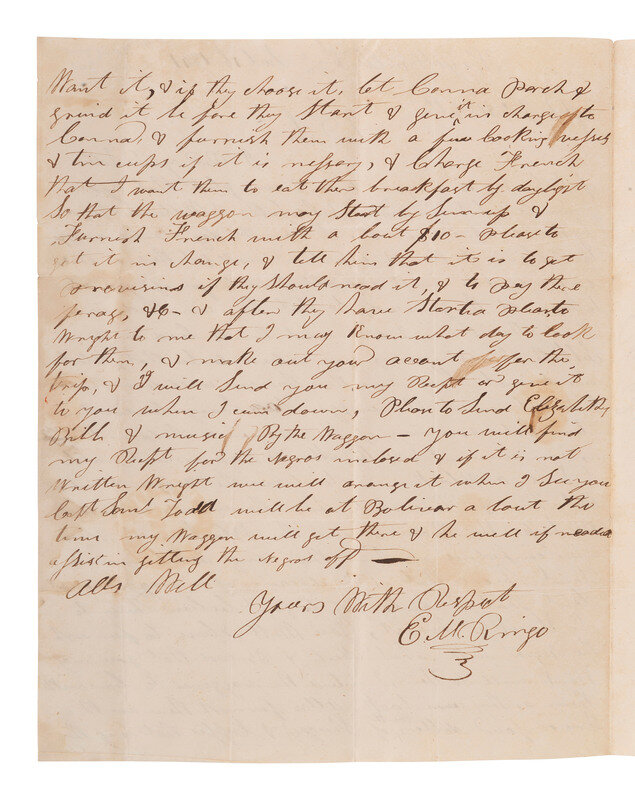 Want it, & if they choose it, let Conna parch &
grind it before they Start & give it in charge to
Conna & furnish them with a few Cooking vessels
& tin cups if it is nessery, & Charge French
that I want them to eat their breakfast by daylight
So that the waggon may Start by Sunup &
Furnish French with a bout $10 – please to
get it in change, & tell him that it is to get
provisins if they Should need it, & to pay there
ferag, &c – & after they have Started please to
Wright to me that I may Know what day to look
for them, & make out your account for the
trip, & I will Send you my Recpt or give it
to you when I cum down, Please to Send Elizabeths
Bill & music By the Waggon – you will find
my Recpt for the Negros inclosed & if it is not
Written Wright we will arange it when I See you
Capt Saml Todd will be at Bolivar a bout the
time my Waggon will get there & he will if needed
assist in getting the Negros off —
Alls Well
Yours With Respect
E. M. Ringo